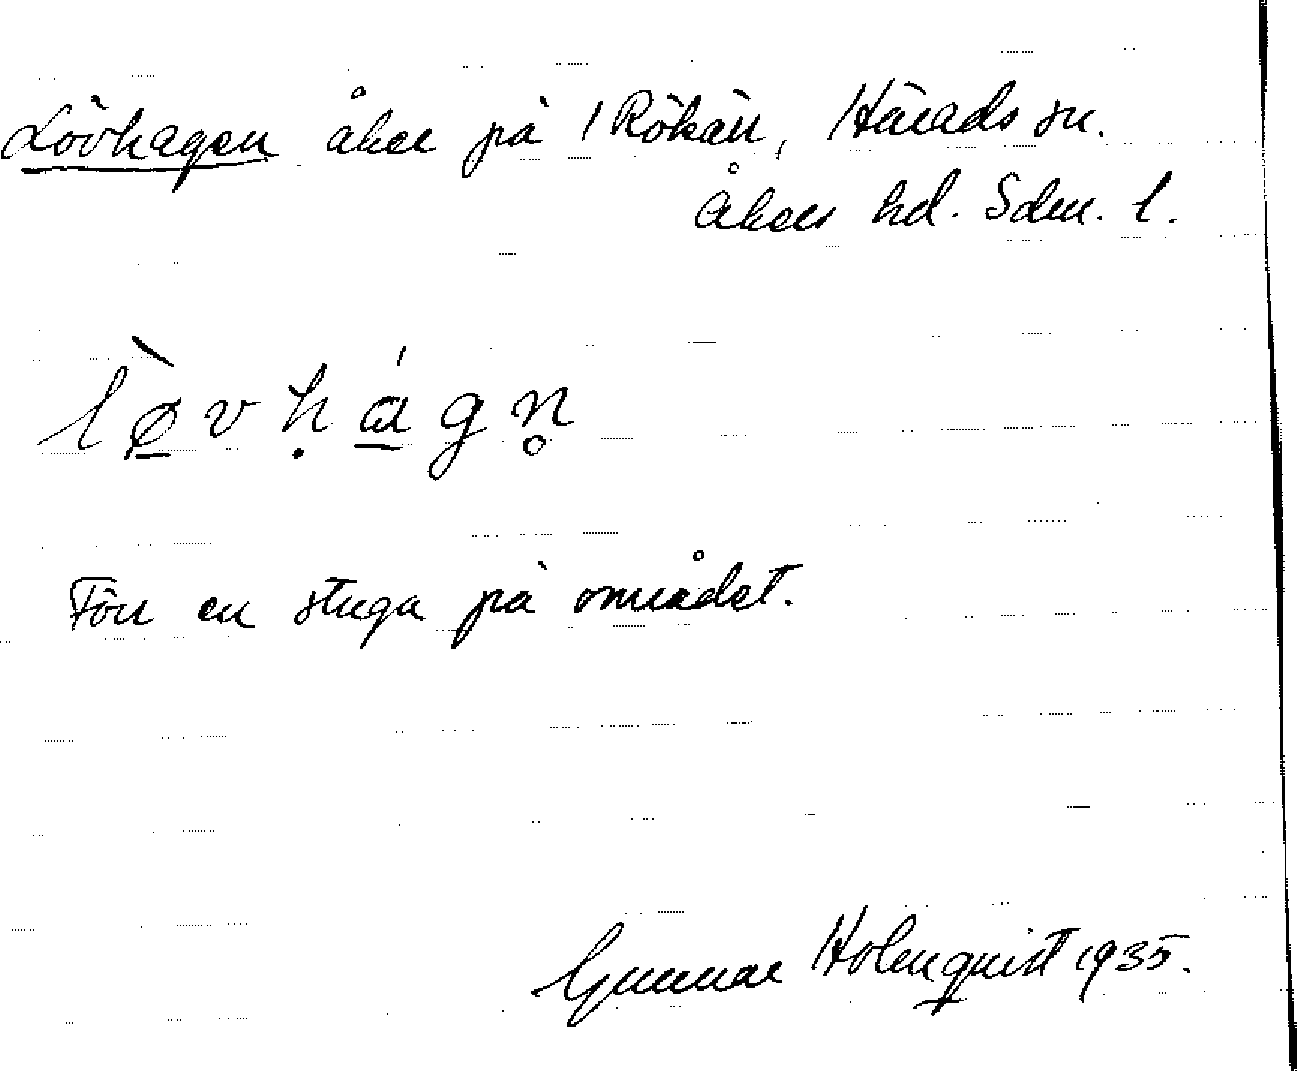 Lövhagen åker på 1 Rökärr, Härads sn.
Åkers hd. Sdm. l.
lø̱̀vḥɑ̱́gn̥
Förr en stuga på området.
Gunnar Holmquist 1935.